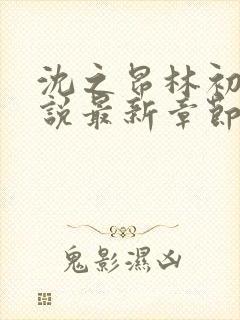 沈之昂林初
說最新章節
鬼影濕凶